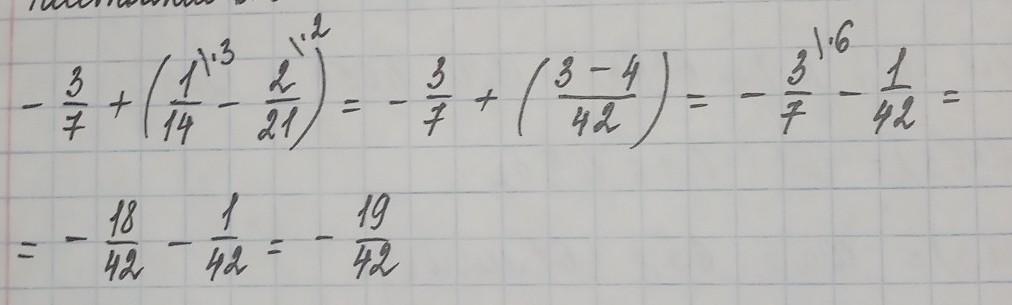 - 3/7 + (1/14 \·3 - 2/21 \·2) = - 3/7 + ((3 - 4)/42) = - 3/7 \·6 - 1/42 =
= - 18/42 - 1/42 = - 19/42